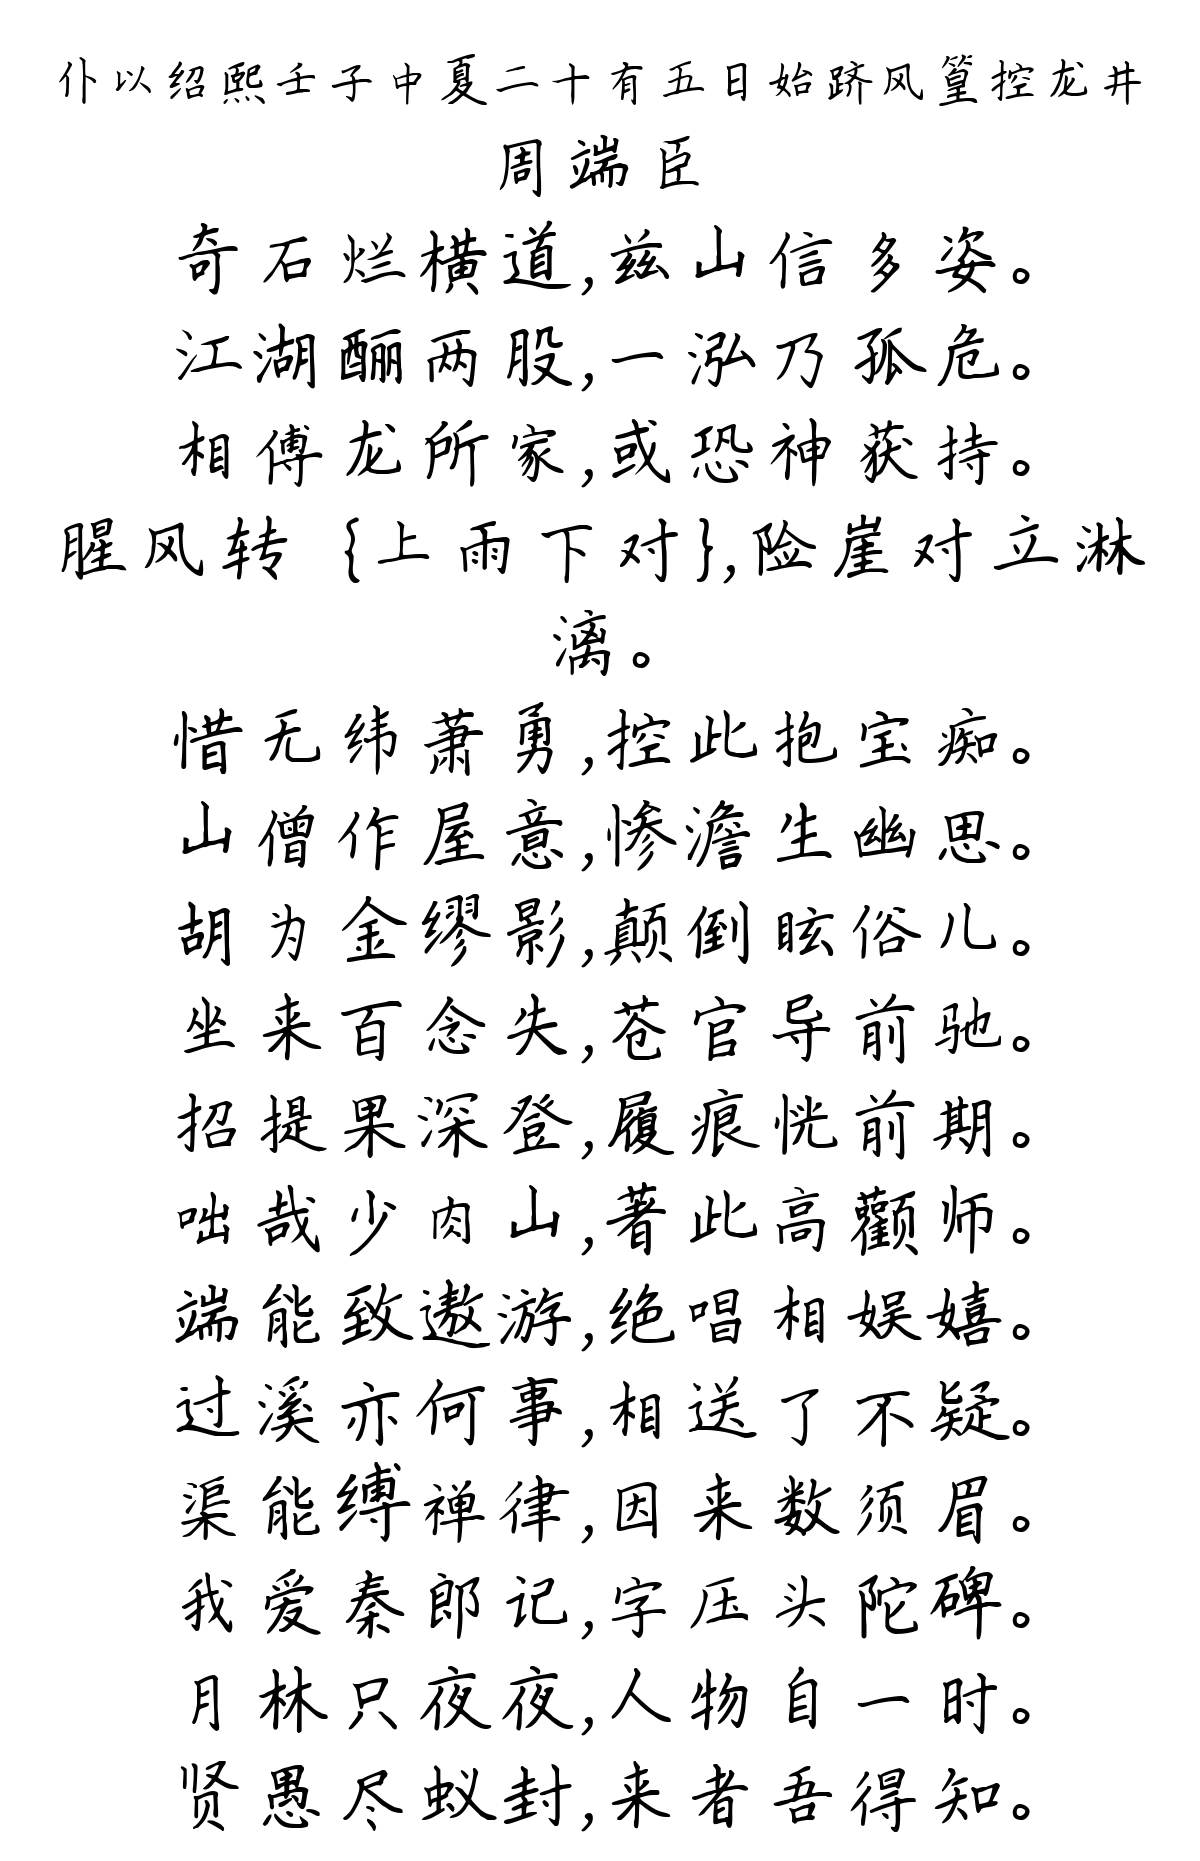 仆以绍熙壬子中夏二十有五日始跻风篁控龙井
周端臣
奇石烂横道,兹山信多姿。
江湖酾两股,一泓乃孤危。
相傅龙所家,或恐神获持。
腥风转 {上雨下对},险崖对立淋
漓。
惜无纬萧勇,控此抱宝痴。
山僧作屋意,惨澹生幽思。
胡为金缪影,颠倒眩俗儿。
坐来百念失,苍官导前驰。
招提果深登,履痕恍前期。
咄哉少肉山,著此高颧师。
端能致遨游,绝唱相娱嬉。
过溪亦何事,相送了不疑。
渠能缚禅律,因来数须眉。
我爱秦郎记,字压头陀碑。
月林只夜夜,人物自一时。
贤愚尽蚁封,来者吾得知。